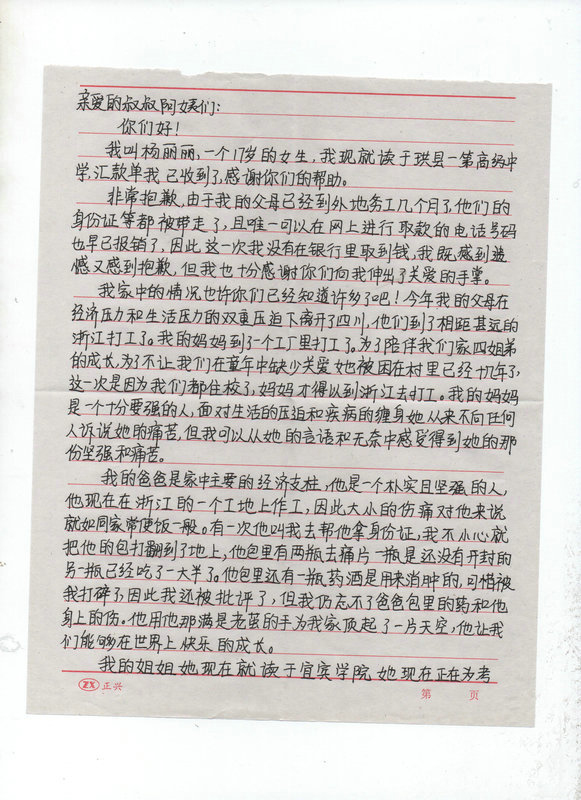 亲爱的叔叔阿姨们:
你们好!
我叫杨丽丽,一个17岁的女生,我现就读于珙县一第高级中
学,汇款单我已收到了,感谢你们的帮助。
非常抱歉,由于我的父母已经到外地务工几个月了,他们的
身份证等都被带走了,且唯一可以在网上进行取款的电话号码
也早已报销了,因此,这一次我没有在银行里取到钱,我既感到遗
憾又感到抱歉,但我也十分感谢你们向我伸出了关爱的手掌。
我家中的情况也许你们已经知道许多了吧!今年我的父母在
经济压力和生活压力的双重压迫下离开了四川,他们到了相距甚远的
浙江打工了。我的妈妈到了一个工厂里打工了。为了陪伴我们家四姐弟
的成长,为了不让我们在童年中缺少关爱她被困在村里已经十几年了,
这一次是因为我们都住校了,妈妈才得以到浙江去打工。我的妈妈
是一个十分要强的人,面对生活的压迫和疾病的缠身她从来不向任何
人诉说她的痛苦,但我可以从她的言语和无奈中感受得到她的那
份坚强和痛苦。
我的爸爸是家中主要的经济支柱,他是一个朴实且坚强的人,
他现在在浙江的一个工地上作工,因此大小的伤痛对他来说
就如同家常便饭一般。有一次他叫我去帮他拿身份证,我不小心就
把他的包打翻到了地上,他包里有两瓶去痛片一瓶是还没有开封的
另一瓶已经吃了一大半了。他包里还有一瓶药酒是用来消肿的,可惜被
我打碎了,因此我还被批评了,但我仍忘不了爸爸包里的药和他
身上的伤。他用他那满是老茧的手为我家顶起了一片天空,他让我
们能够在世界上快乐的成长。
我的姐姐她现在就读于宜宾学院她现在正在为考
ZX 正兴 第 页